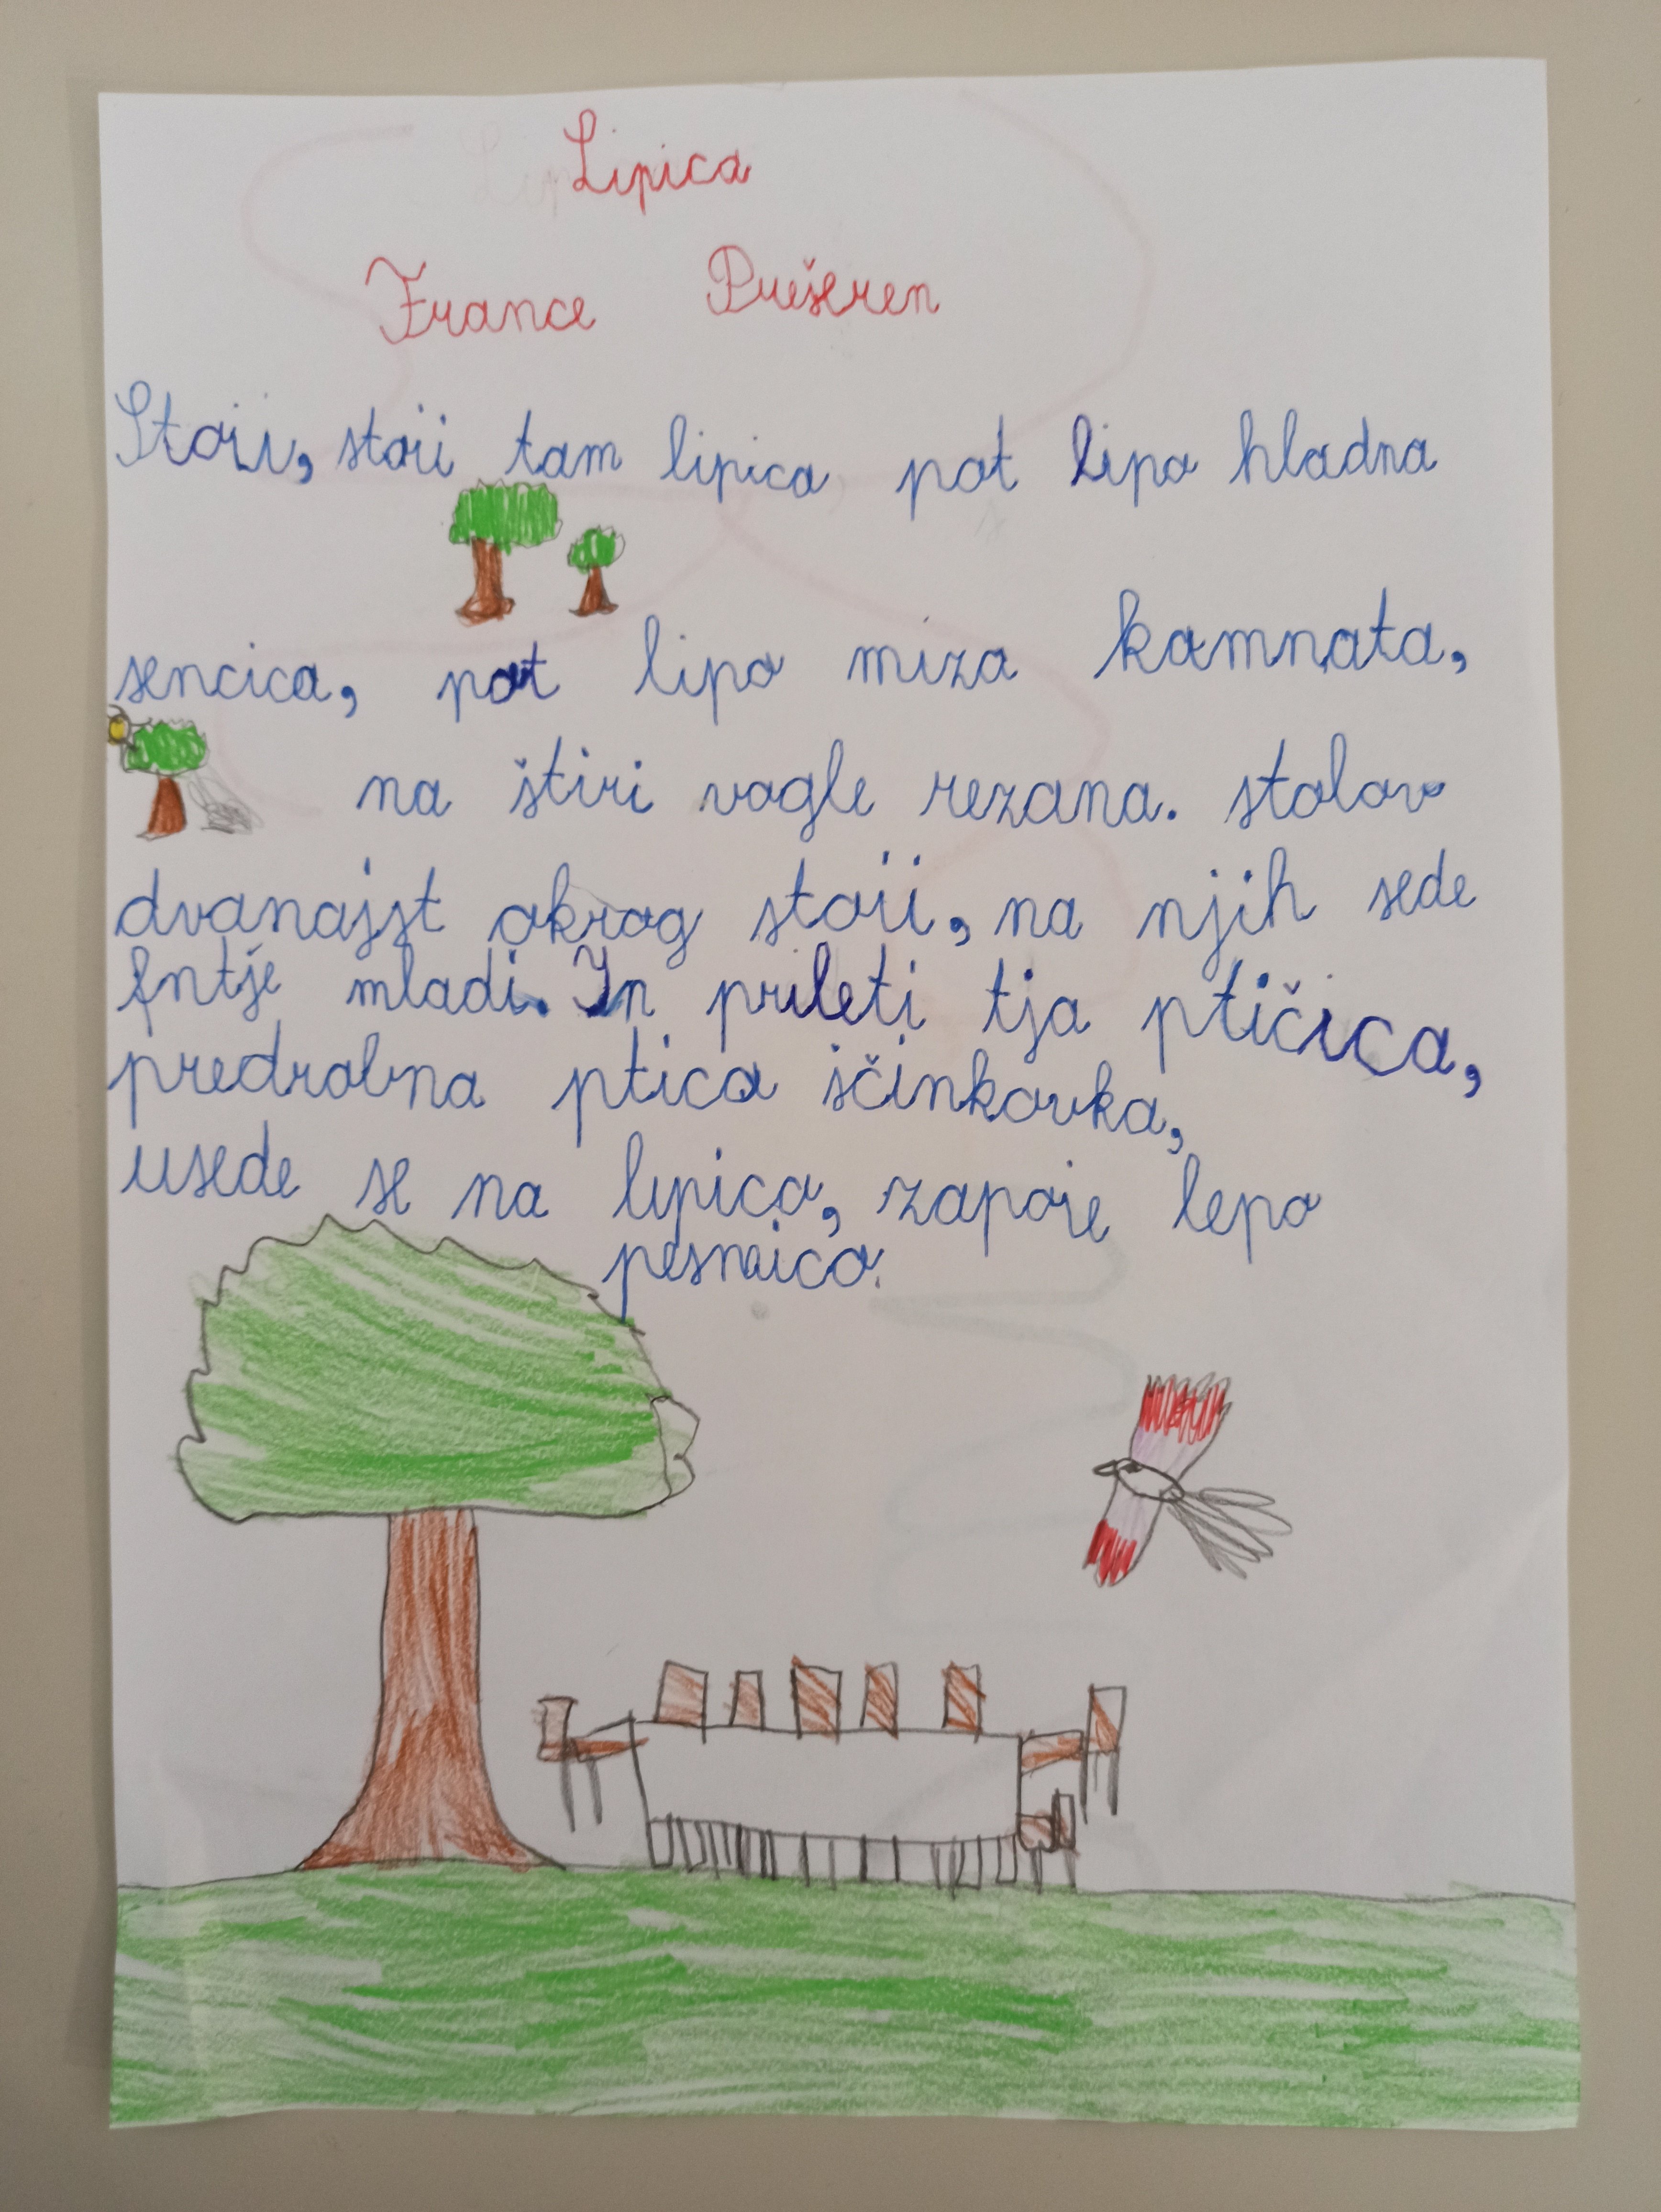 Lipica
France Prešeren
Stoji, stoji tam lipica pot lipo hladna
sencica, pot lipo miza kamnata,
na štiri vogle rezana. stolov
dvanajst okrog stoji, na njih sede
fntje mladi. In prileti tja ptičica,
predrobna ptica ščinkovka,
usede se na lipico, zapoje lepo
pesmico.